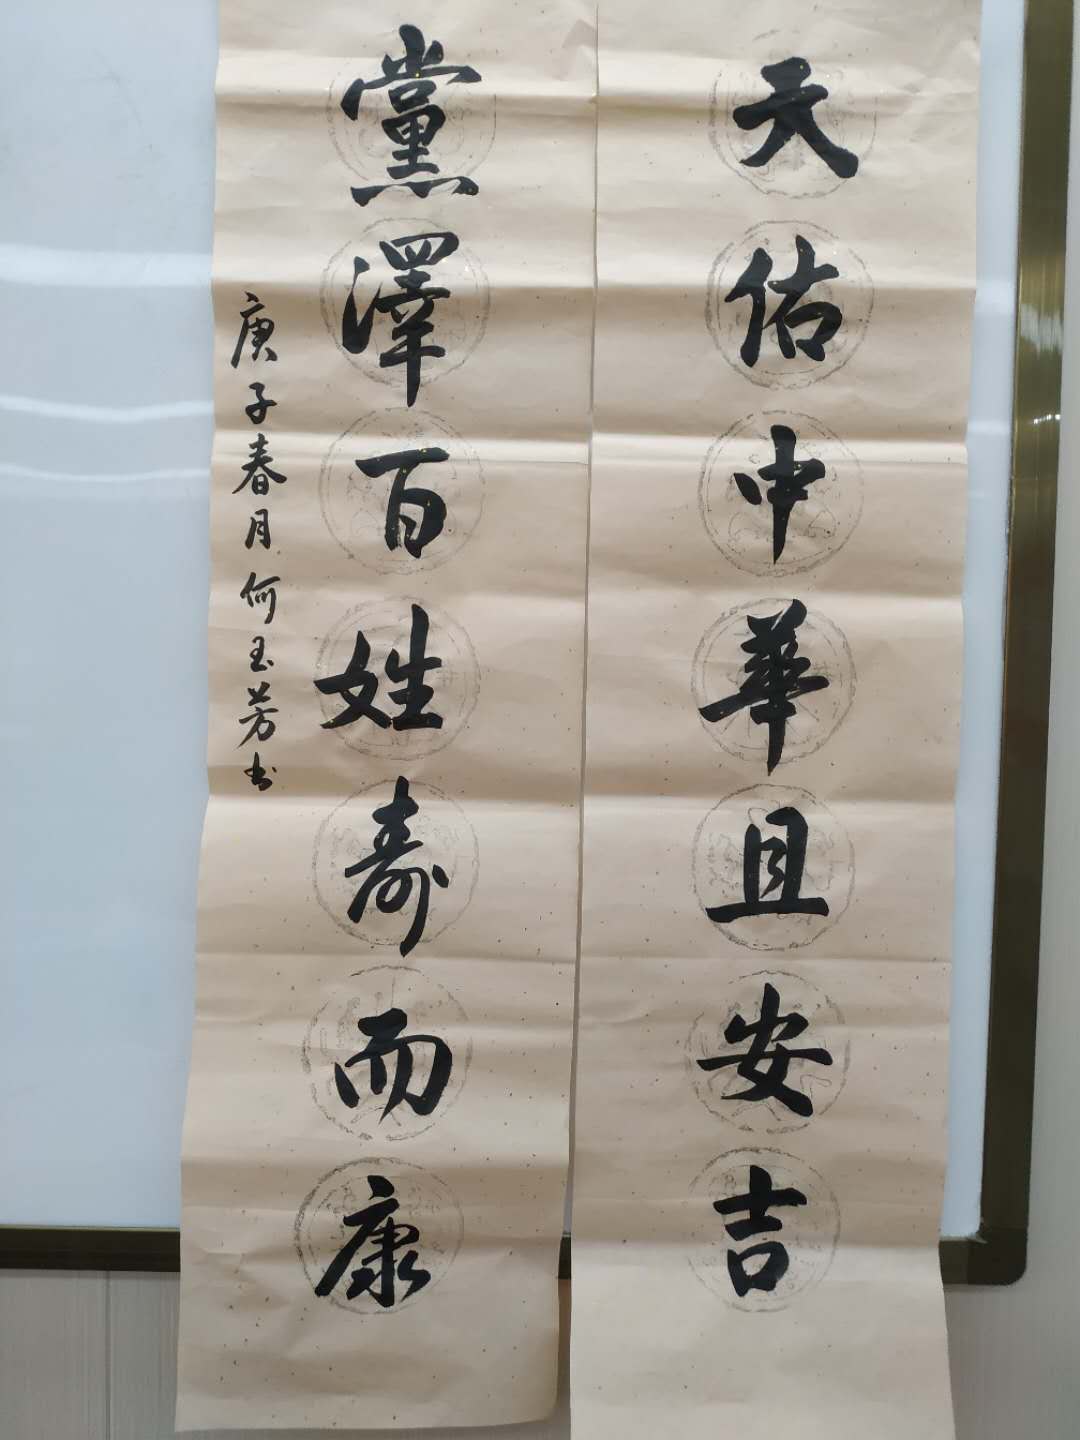 天佑中華且安吉
黨澤百姓壽而康
庚子春月何玉芳书